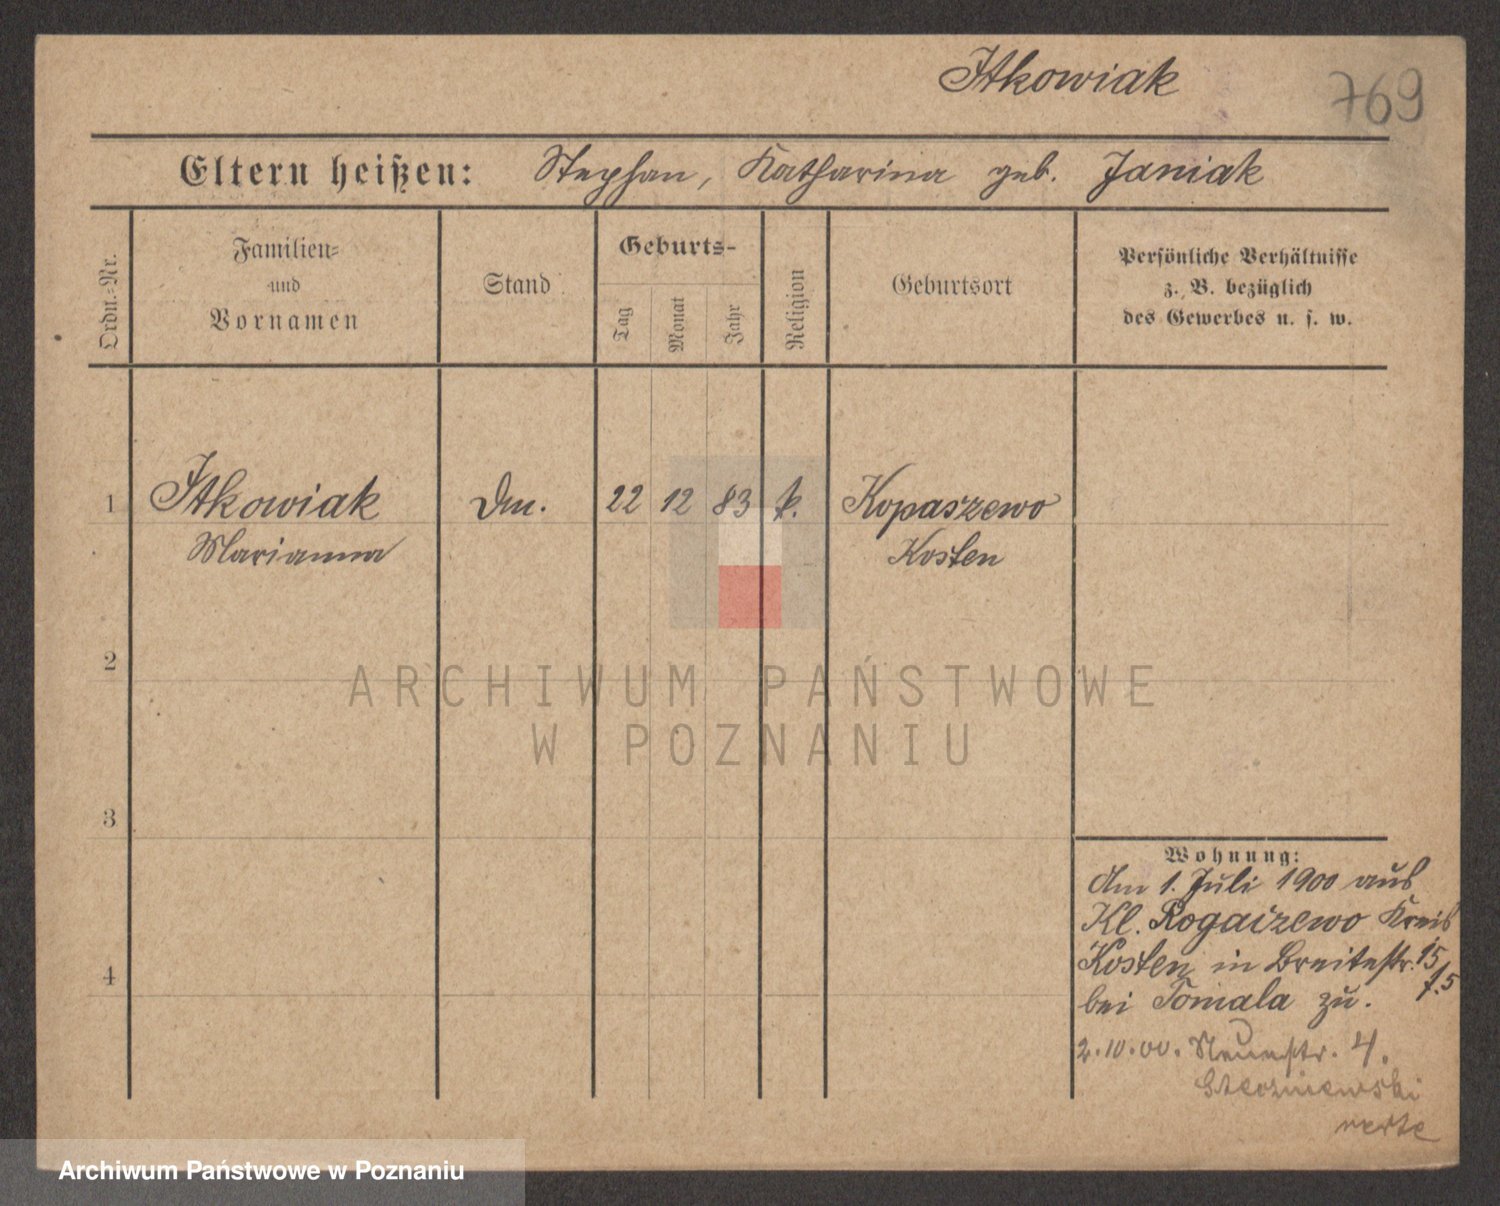 Itkowiak
769
Eltern heißen: Stephan, Katharina geb. Janiak
Ordn.-Nr.
Familien-
und
Vornamen
Stand
Geburts-
Tag
Monat
Jahr
Religion
Geburtsort
Persönliche Verhältnisse
z. B. bezüglich
des Gewerbes u. s. w.
1 Itkowiak Dm. 22 12 83 k. Kopaszewo
Marianna Kosten
2
ARCHIWUM PAŃSTWOWE
W POZNANIU
3
Wohnung:
Am 1. Juli 1900 aus
Kl. Rogaczewo Kreis
4
Kosten in Breitestr. 15
bei Tomala zu.
2.10.00. Neuestr. 4.
verte
Archiwum Państwowe w Poznaniu